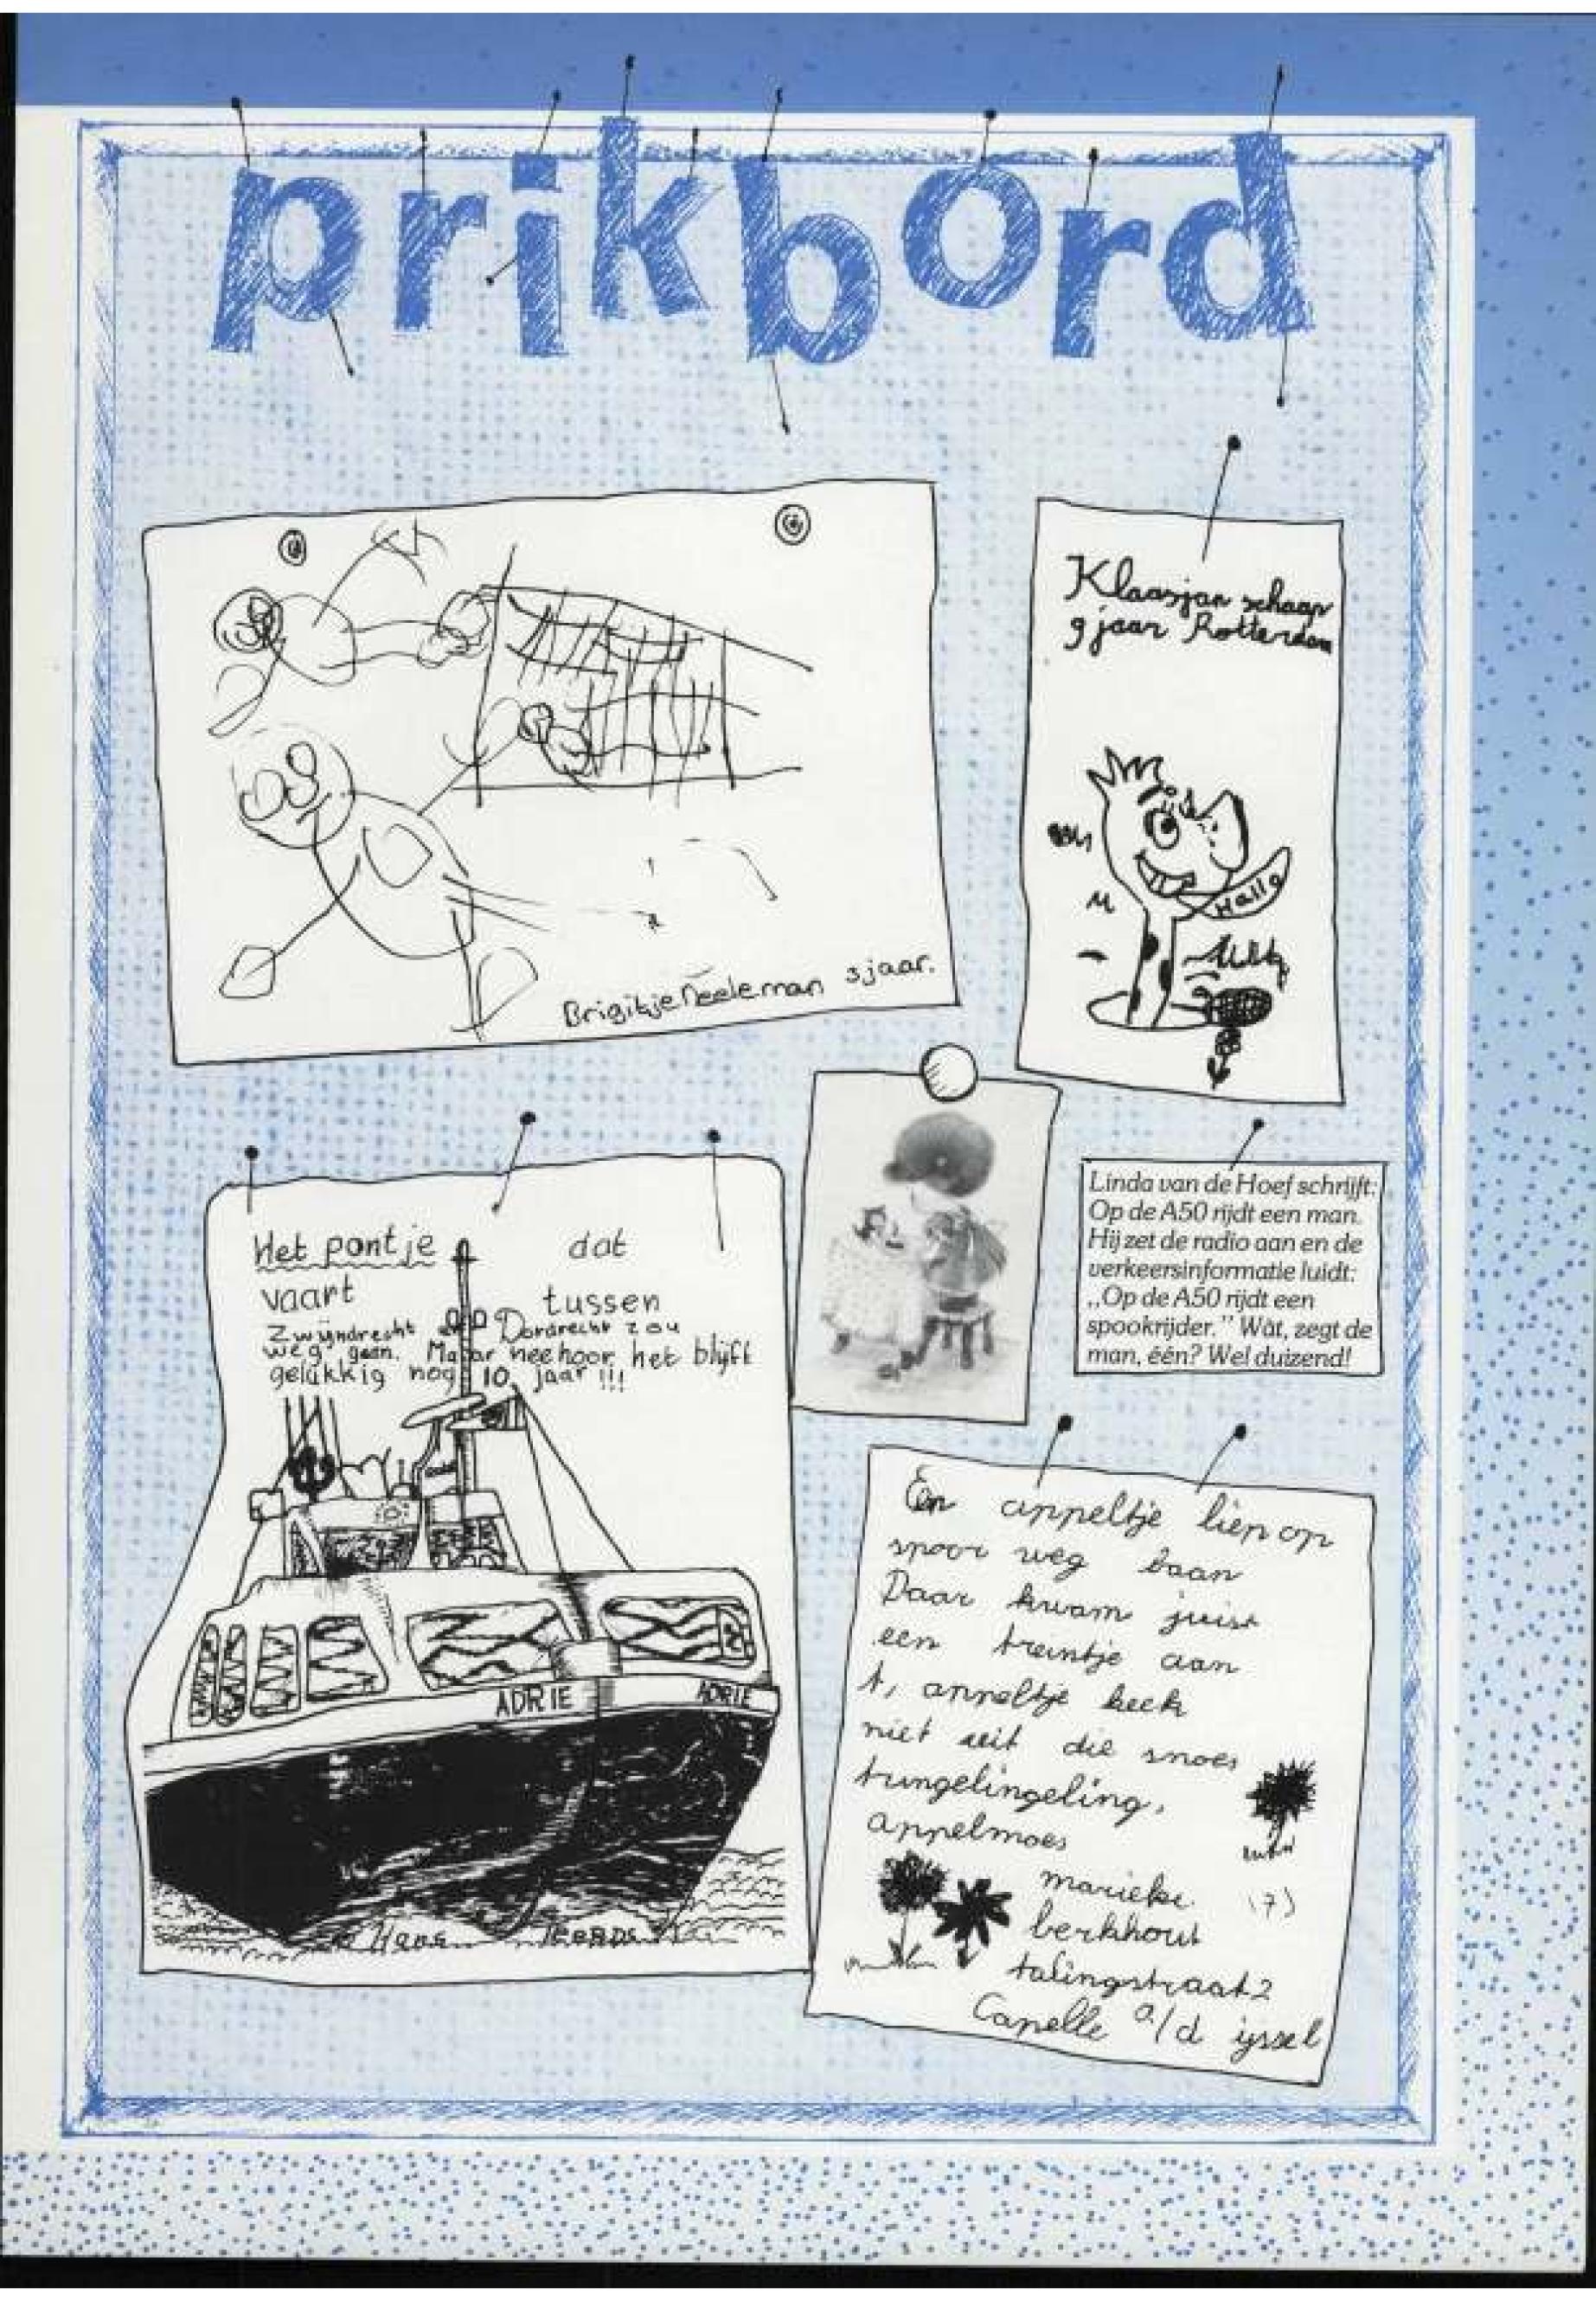 prikbord
Klaasjan schaap
9 jaar Rotterdam
Hallo
Brigitje Neeleman 3 jaar.
Het pontje dat
vaart tussen
Zwijndrecht en Dordrecht zou
weg gaan. Maar nee hoor het blijft
gelukkig nog 10 jaar !!!
ADRIE ADRIE
Linda van de Hoef schrijft:
Op de A50 rijdt een man.
Hij zet de radio aan en de
verkeersinformatie luidt:
„Op de A50 rijdt een
spookrijder." Wàt, zegt de
man, één? Wel duizend!
En appeltje liep op
spoor weg baan
Daar kwam juist
een treintje aan
t, appeltje keek
niet uit die snoes
tungelingeling,
appelmoes
marieke (7)
berkhout
talingstraat 2
Capelle a/d ijssel